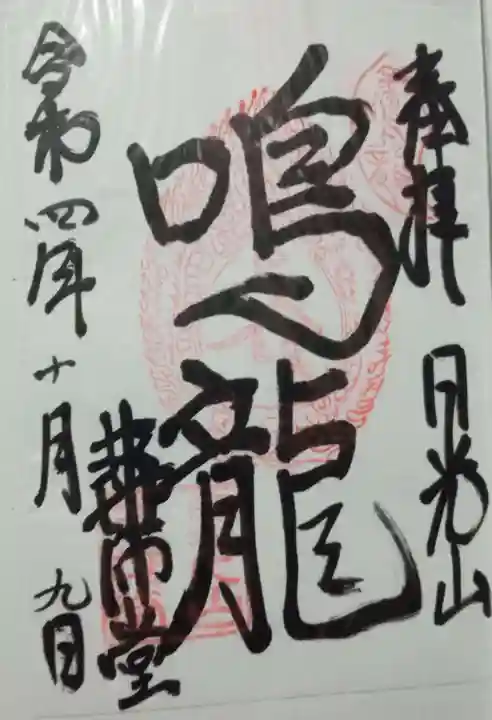 奉拝 日光山
鳴龍
薬師堂
令和四年十月九日